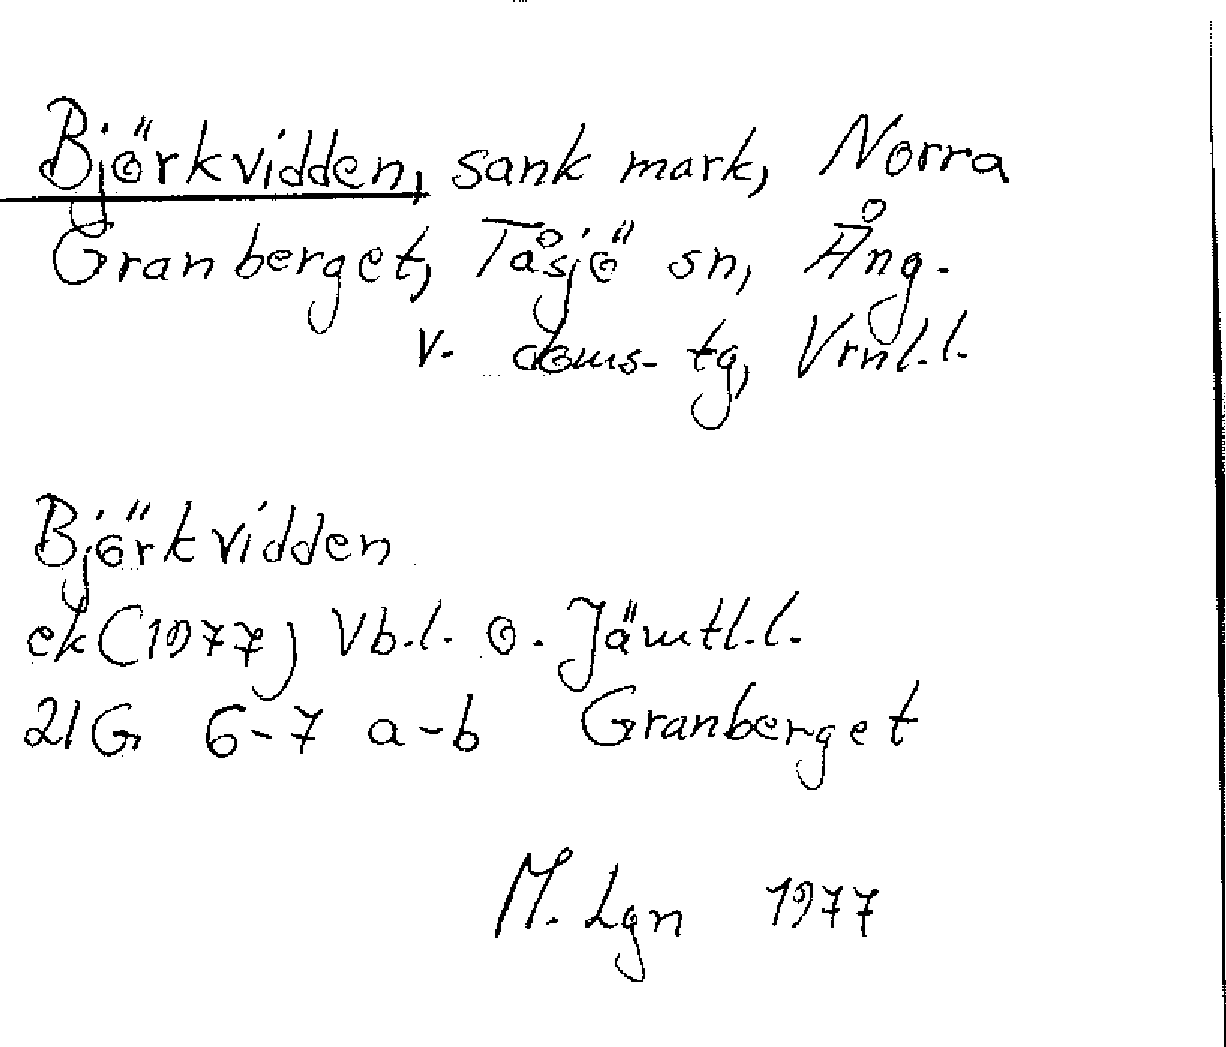 Björkvidden, sank mark, Norra
Granberget, Tåsjö sn, Ång.
v. doms. tg, Vrnl.l.
Björkvidden
ek (1977) Vb.l. o. Jämtl.l.
21G 6-7 a-b Granberget
M. Lgn 1977